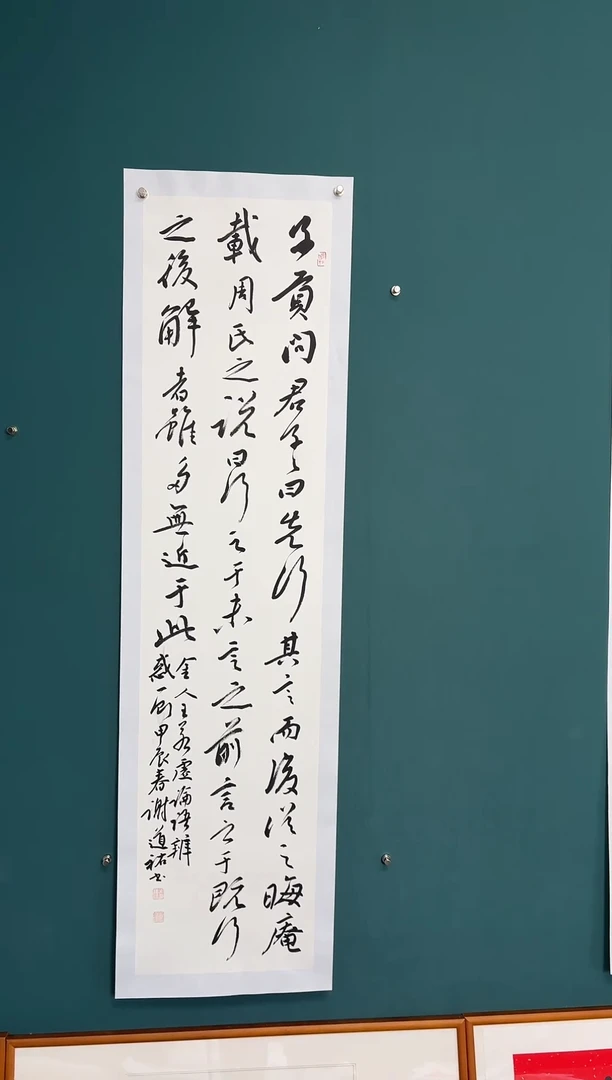 子貢問君子子曰先行其言而後從之晦庵
載周氏之説曰行之于未言之前言之于既行
之後解者雖多無近于此
金人王若虛論語辨
惑一則甲辰春謝道祐書